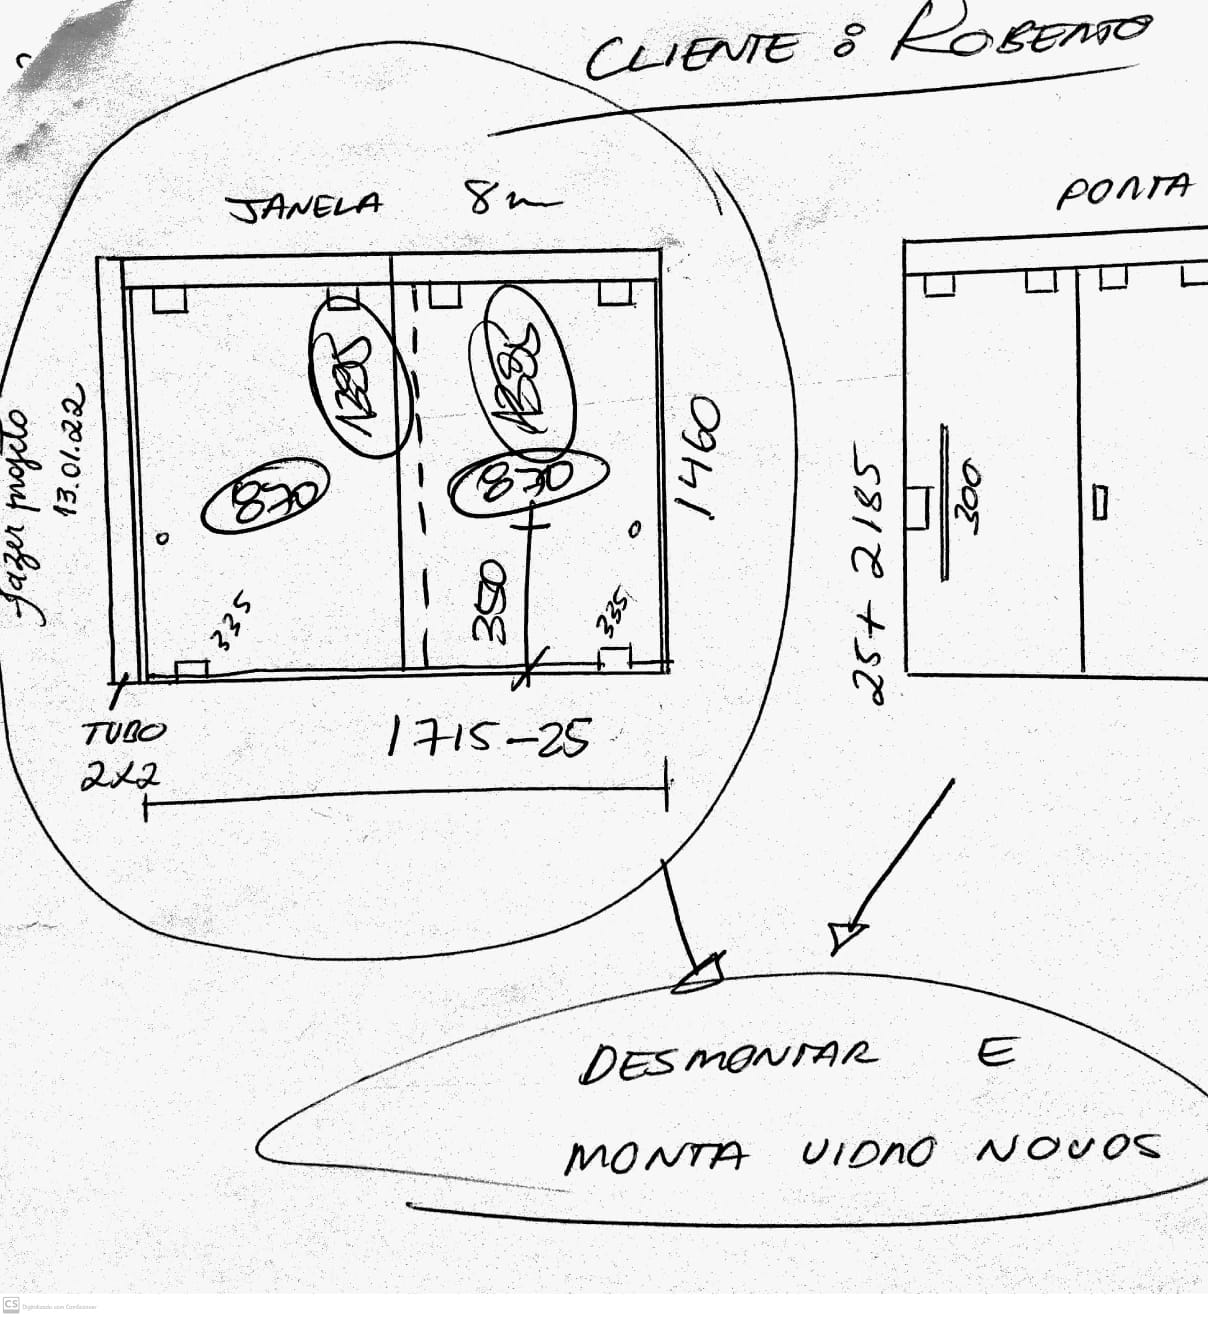 CLIENTE: ROBERTO
JANELA 8m
PORTA
fazer projeto
13.01.22
1385
1385
870
870
1460
350
335
335
25+2185
300
TUBO
2x2
1715-25
DESMONTAR E
MONTA VIDRO NOVOS
CS Digitalizado com CamScanner